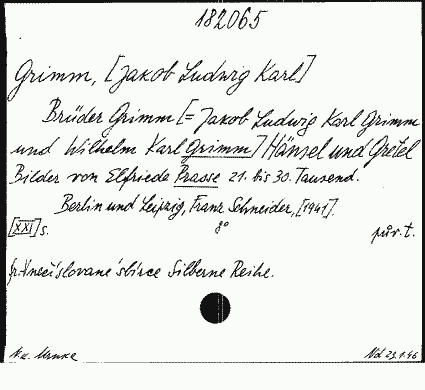 182065
Grimm, [Jakob Ludwig Karl]
Brüder Grimm [= Jakob Ludwig Karl Grimm
und Wilhelm Karl Grimm] Hänsel und Gretel
Bilder von Elfriede Prasse 21. bis 30. Tausend.
Berlin und Leipzig, Franz Schneider, [1941].
[XXI] s. 8° pův. t.
V nečíslované sbírce Silberne Reihe.
Nd 23.1.46